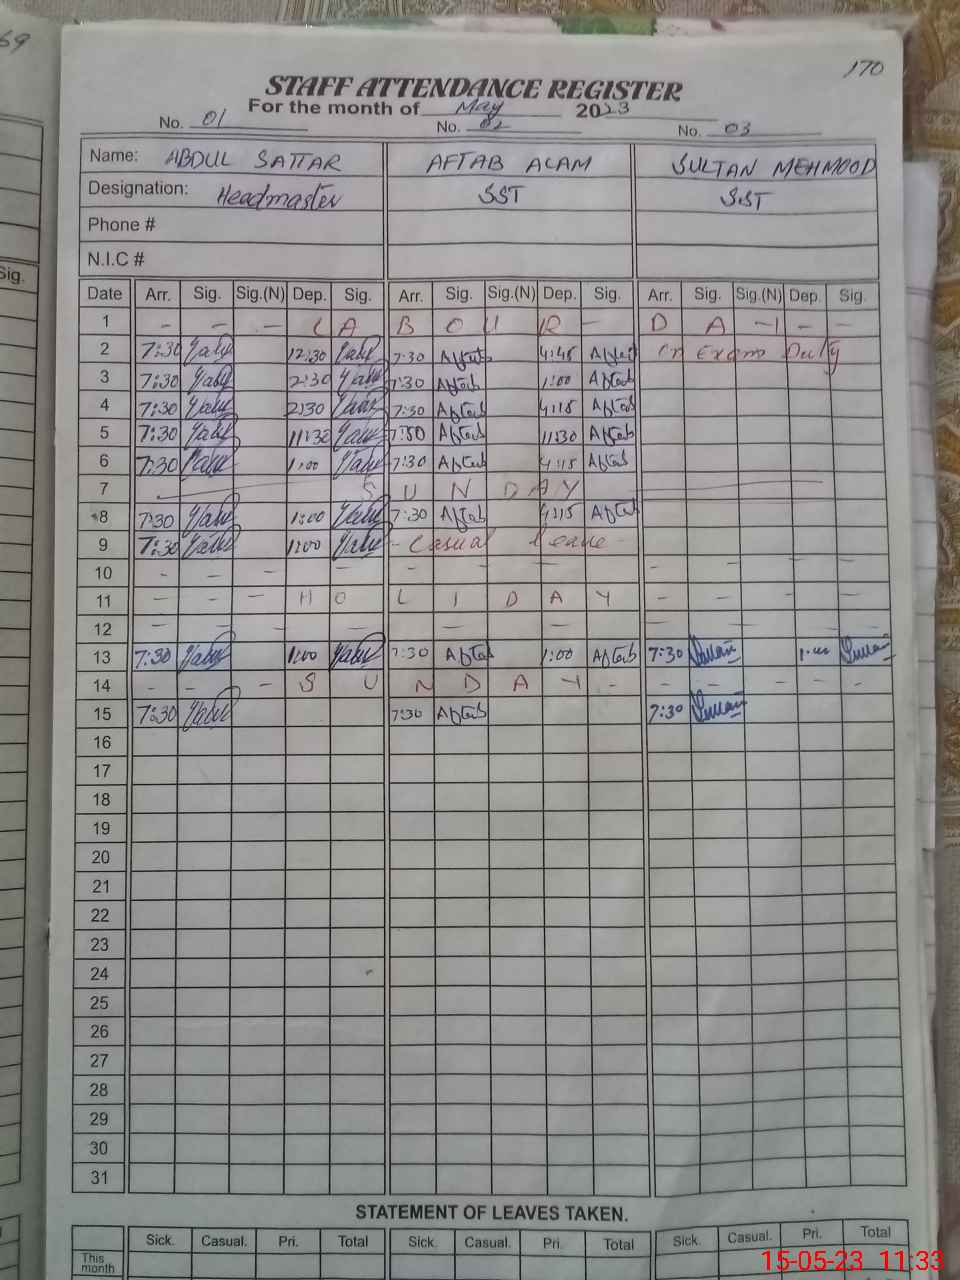 69
170
STAFF ATTENDANCE REGISTER
For the month of May 2023
No. 01 No. 02 No. 03
Name: ABDUL SATTAR AFTAB ALAM SULTAN MEHMOOD
Designation: Headmaster SST SST
Phone #
N.I.C #
Sig.
Date Arr. Sig. Sig.(N) Dep. Sig. Arr. Sig. Sig.(N) Dep. Sig. Arr. Sig. Sig.(N) Dep. Sig.
1 - - - L A B O U R - D A Y - -
2 7:30 12:30 7:30 Aftab 4:45 Aftab on Exam Duty
3 7:30 2:30 7:30 Aftab 1:00 Aftab
4 7:30 2:30 7:30 Aftab 4:15 Aftab
5 7:30 11:30 7:30 Aftab 11:30 Aftab
6 7:30 1:00 7:30 Aftab 4:15 Aftab
7 S U N D A Y
8 7:30 1:00 7:30 Aftab 4:15 Aftab
9 7:30 1:00 - Casual leave -
10 - - - - - - - - -
11 - - - H O L I D A Y - - - - -
12 - - - - - - - - -
13 7:30 1:00 7:30 Aftab 1:00 Aftab 7:30
14 - - - S U N D A Y - - - - - -
15 7:30 7:30 Aftab 7:30
16
17
18
19
20
21
22
23
24
25
26
27
28
29
30
31
STATEMENT OF LEAVES TAKEN.
Sick. Casual. Pri. Total Sick. Casual. Pri. Total Sick. Casual. Pri. Total
This month
15-05-23 11:33